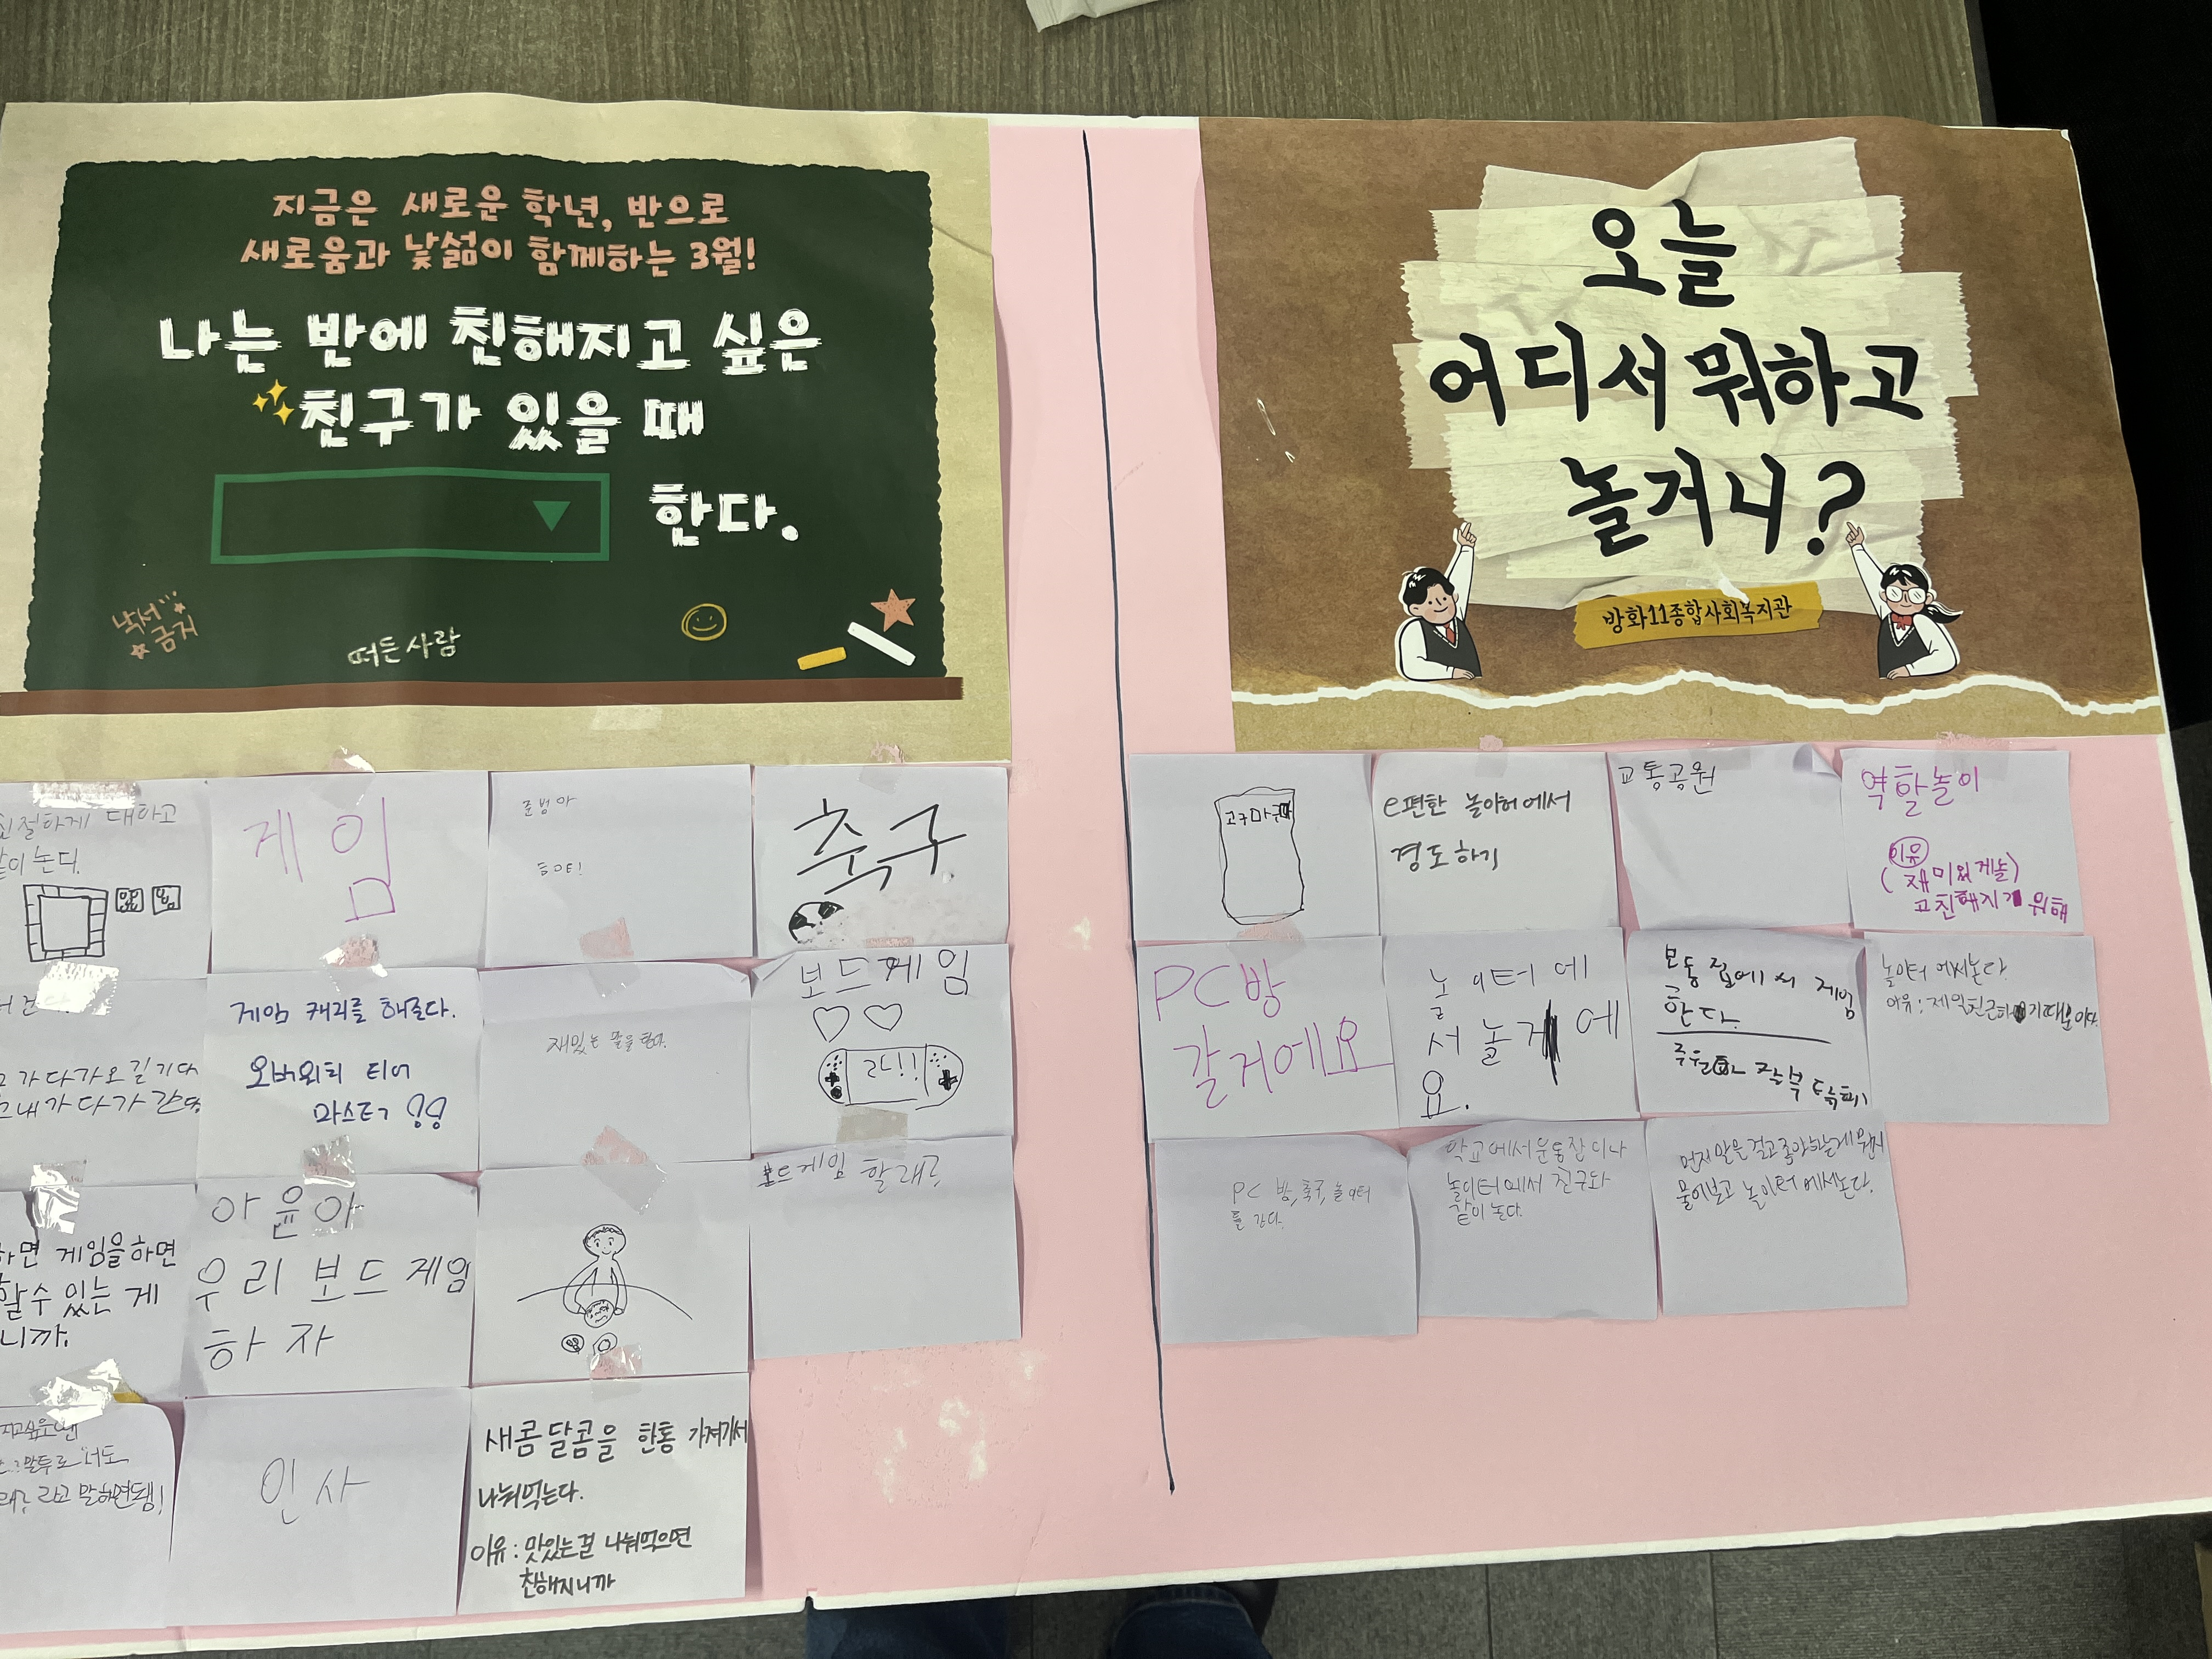 지금은 새로운 학년, 반으로
새로움과 낯섦이 함께하는 3월!
나는 반에 친해지고 싶은
친구가 있을 때
한다.
낙서
금지
떠든사람
친절하게 대하고
같이 논다.
게임
준범아
축구
게임 캐리를 해준다.
오버워치 티어
마스터
재밌는 말을 한다.
보드게임
가 다가오길 기다
내가 다가 간다
하면 게임을하면
할수 있는 게
니까.
아윤아
우리 보드게임
하자
보드게임 할래?
말투로 너도
래? 라고 말하면됨!
인사
새콤달콤을 한통 가져가서
나눠먹는다.
이유: 맛있는걸 나눠먹으면
친해지니까
오늘
어디서 뭐하고
놀거니?
방화11종합사회복지관
고구마
e편한 놀이터에서
경도하기
교통공원
역할놀이
이유
(재미있게놀)
고친해지기 위해
PC방
갈거에요
놀이터에
서 놀게에
요.
보통 집에서 게임
한다.
놀이터에서논다.
이유: 제일친근하기때문이다.
PC 방, 축구, 놀이터
를 간다.
학교에서운동장이나
놀이터에서 친구와
같이 논다.
먼저 말을 걸고 좋아하는게 뭔지
물어보고 놀이터에서논다.